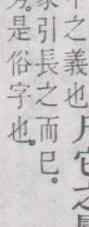 之義也凡它之
引長之而已。
是俗字也。